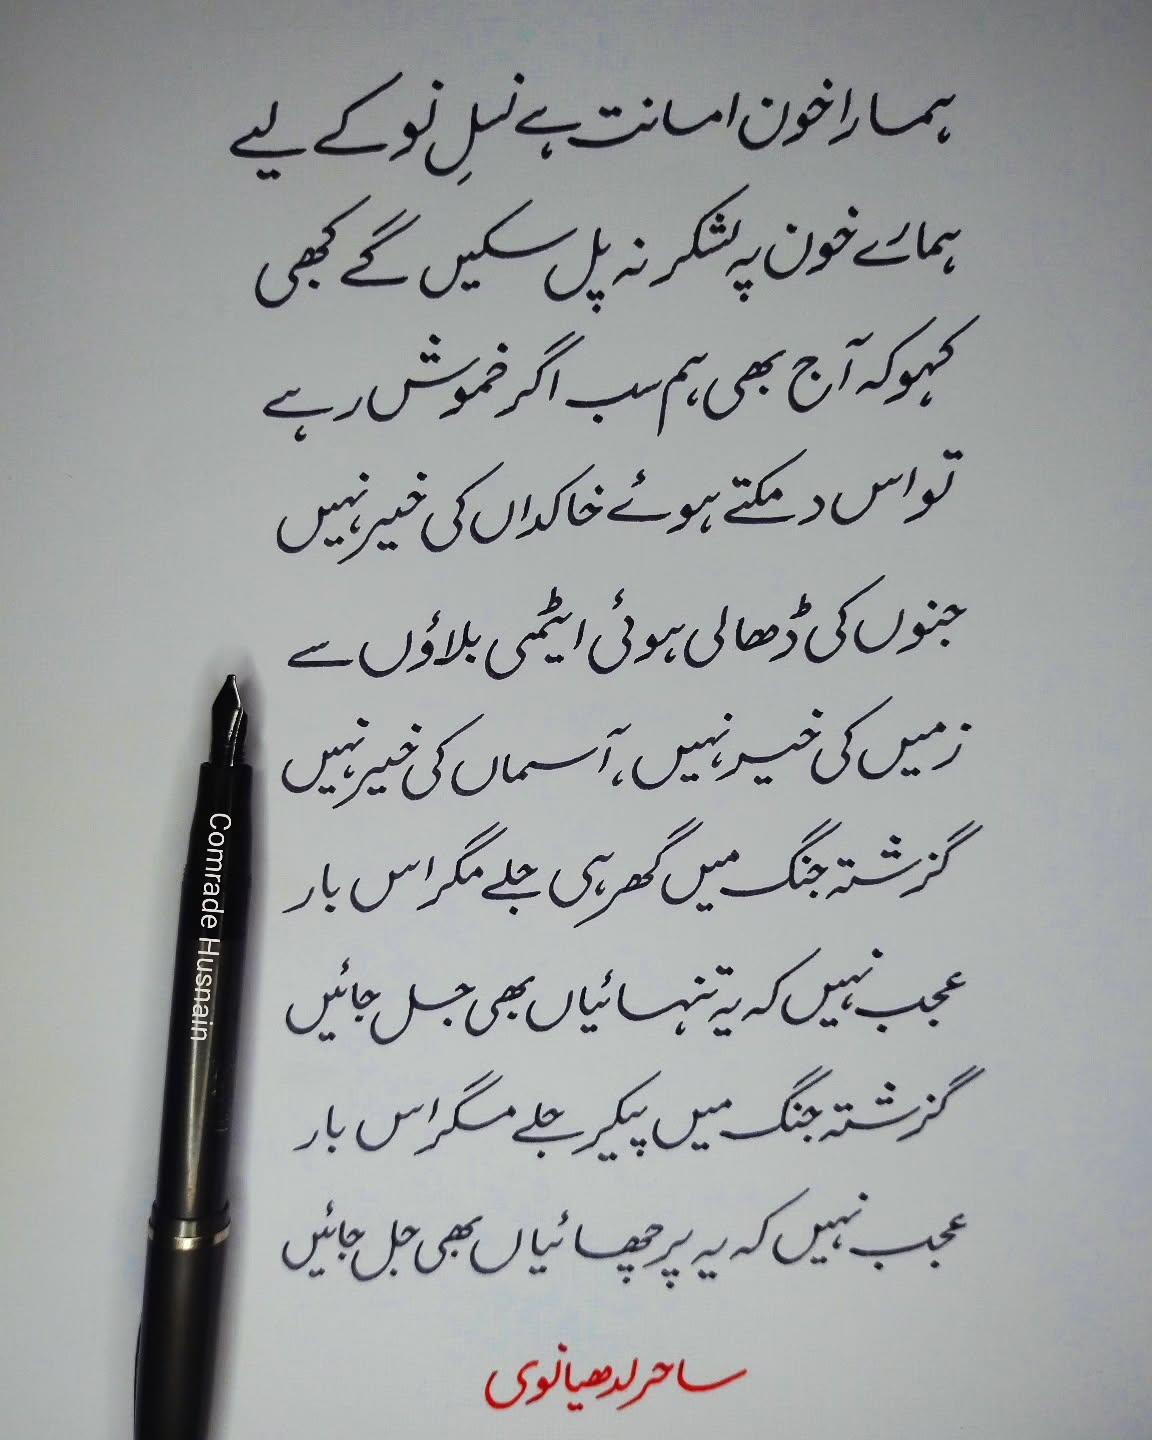 ہمارا خون امانت ہے نسلِ نو کے لیے
ہمارے خون پہ لشکر نہ پل سکیں گے کبھی
کہو کہ آج بھی ہم سب اگر خموش رہے
تو اس دمکتے ہوئے خاکداں کی خیر نہیں
جنوں کی ڈھالی ہوئی ایٹمی بلاؤں سے
زمیں کی خیر نہیں، آسماں کی خیر نہیں
گزشتہ جنگ میں گھر ہی جلے مگر اس بار
عجب نہیں کہ یہ تنہائیاں بھی جل جائیں
گزشتہ جنگ میں پیکر جلے مگر اس بار
عجب نہیں کہ یہ پرچھائیاں بھی جل جائیں
ساحر لدھیانوی
Comrade Husnain